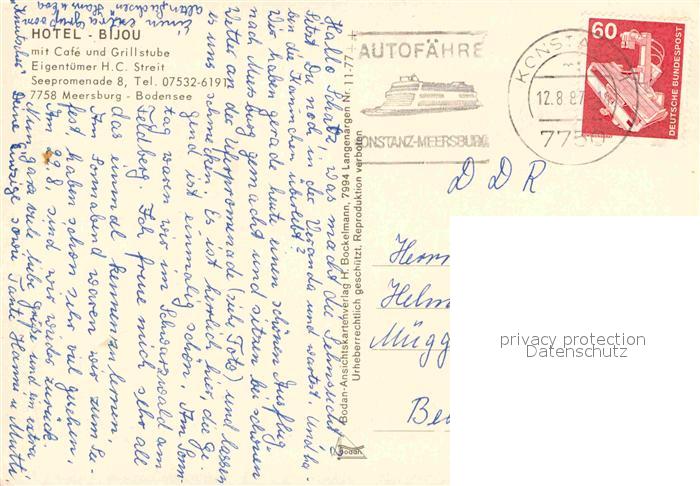 HOTEL - BIJOU
mit Café und Grillstube
Eigentümer H.C. Streit
Seepromenade 8, Tel. 07532-6197
7758 Meersburg - Bodensee
Hallo Schatz, was macht die Sehnsucht?
Sitzt Du noch in der Veranda und wartest. Und ha-
ben die überlebt?
Wir haben gerade heute einen schönen Ausflug
nach Meersburg gemacht und sitzen bei schönem
Wetter an der Uferpromenade (siehe Foto) und lassen
es uns schmecken. Es ist herrlich hier, die Ge-
gend ist einmalig schön. Am Sonn-
tag waren wir im Schwarzwald am
Feldberg. Ich freue mich sehr all
das einmal kennenzulernen,
Am Sonnabend waren wir zum See-
fest, haben schon sehr viel gesehen,
Am 8. sind wir wieder zurück.
Nun ganz viele liebe Grüße und ein extra
Deine Einzige sowie Tante Hanni u. Mutti
einen extra Gruß vom
Bodan-Ansichtskartenverlag H. Bockelmann, 7994 Langenargen Nr. 11-777++
Urheberrechtlich geschützt. Reproduktion verboten
Bodan
AUTOFÄHRE
KONSTANZ-MEERSBURG
KONST
12.8.87
7750
60
DEUTSCHE BUNDESPOST
DDR
Herrn
Helm
Mügg
Be
privacy protection
Datenschutz